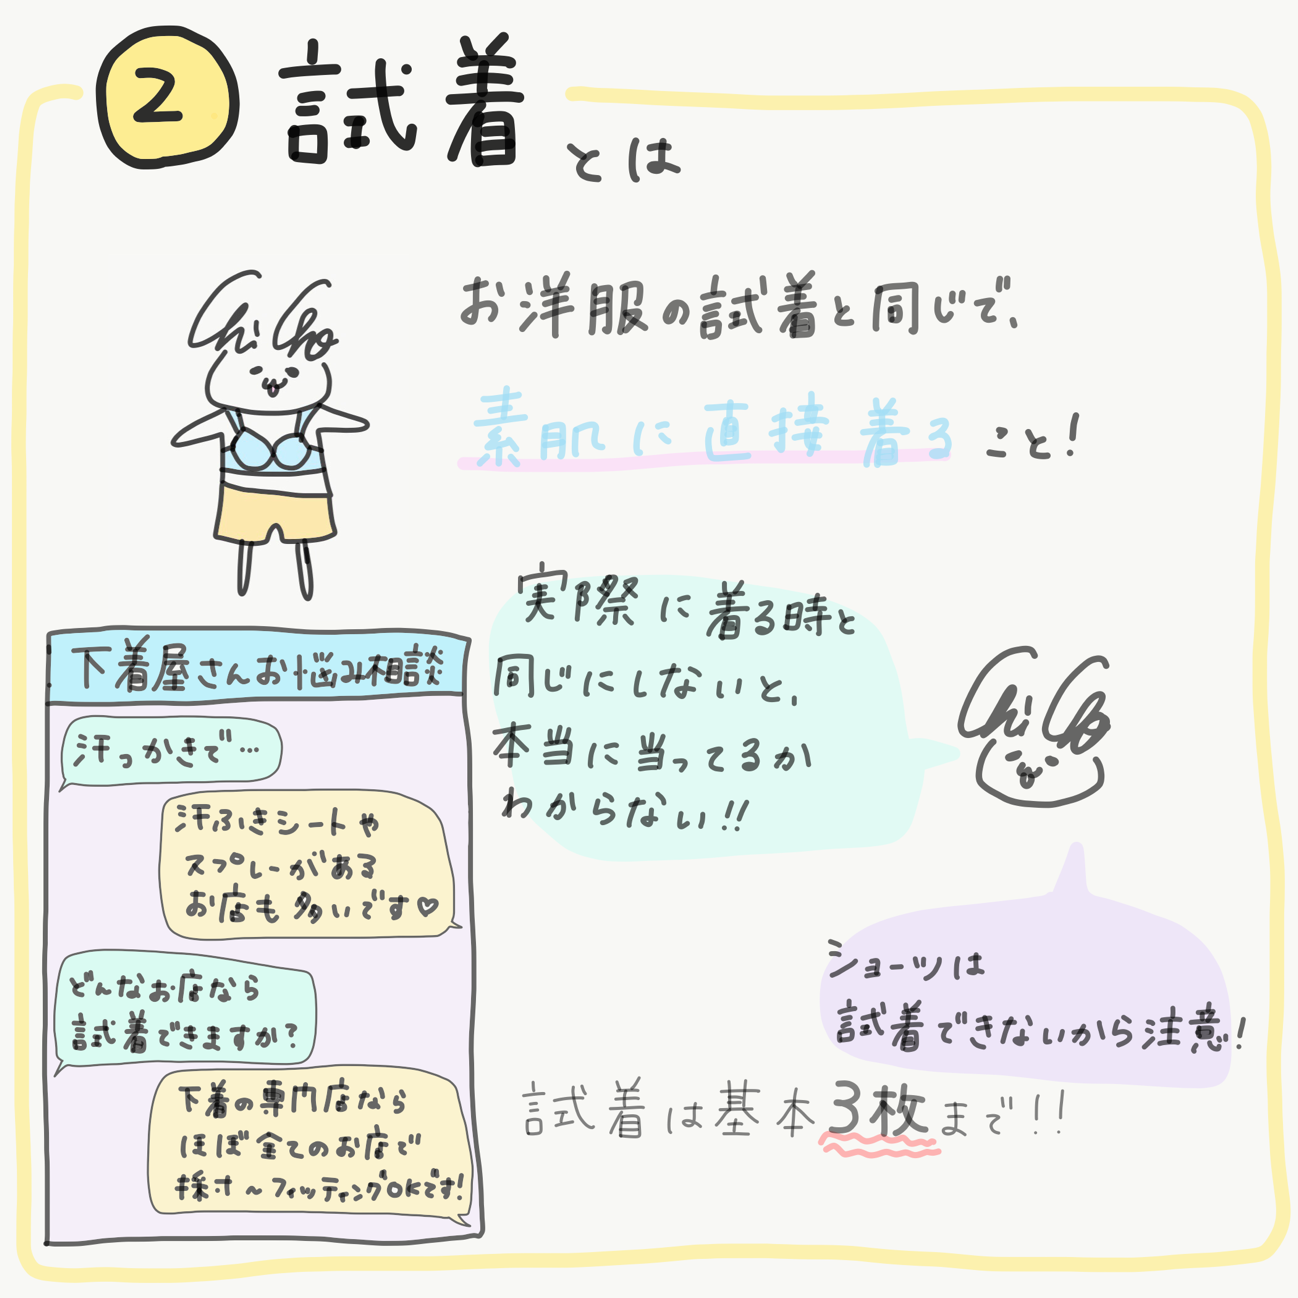 2 試着とは
お洋服の試着と同じで、
素肌に直接着ること!
実際に着る時と
同じにしないと、
本当に当ってるか
わからない!!
chiCho
chiCho
下着屋さんお悩み相談
汗っかきで…
汗ふきシートや
スプレーがある
お店も多いです♡
どんなお店なら
試着できますか?
下着の専門店なら
ほぼ全てのお店で
採寸~フィッティングOKです!
ショーツは
試着できないから注意!
試着は基本3枚まで!!